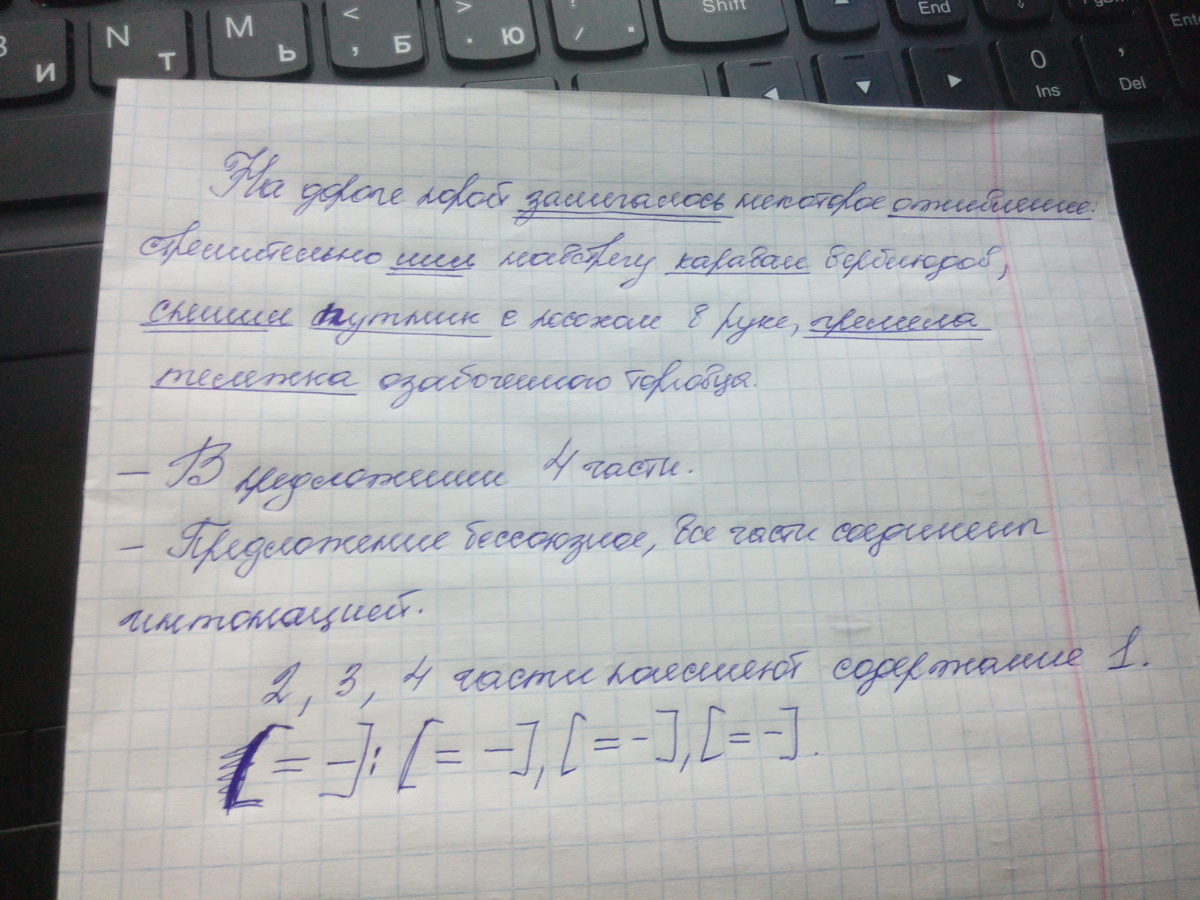 З И N Т M Ь < , Б > . Ю ? / . Shift End PgDn Ente
0 Ins , Del
На дороге порой замечалось некоторое оживление:
стремительно шел навстречу караван верблюдов,
спешил путник с посохом в руке, гремела
тележка озабоченного торговца.
– В предложении 4 части.
– Предложение бессоюзное, все части соединены
интонацией.
2, 3, 4 части поясняют содержание 1.
[= –]: [= –], [= –], [= –].